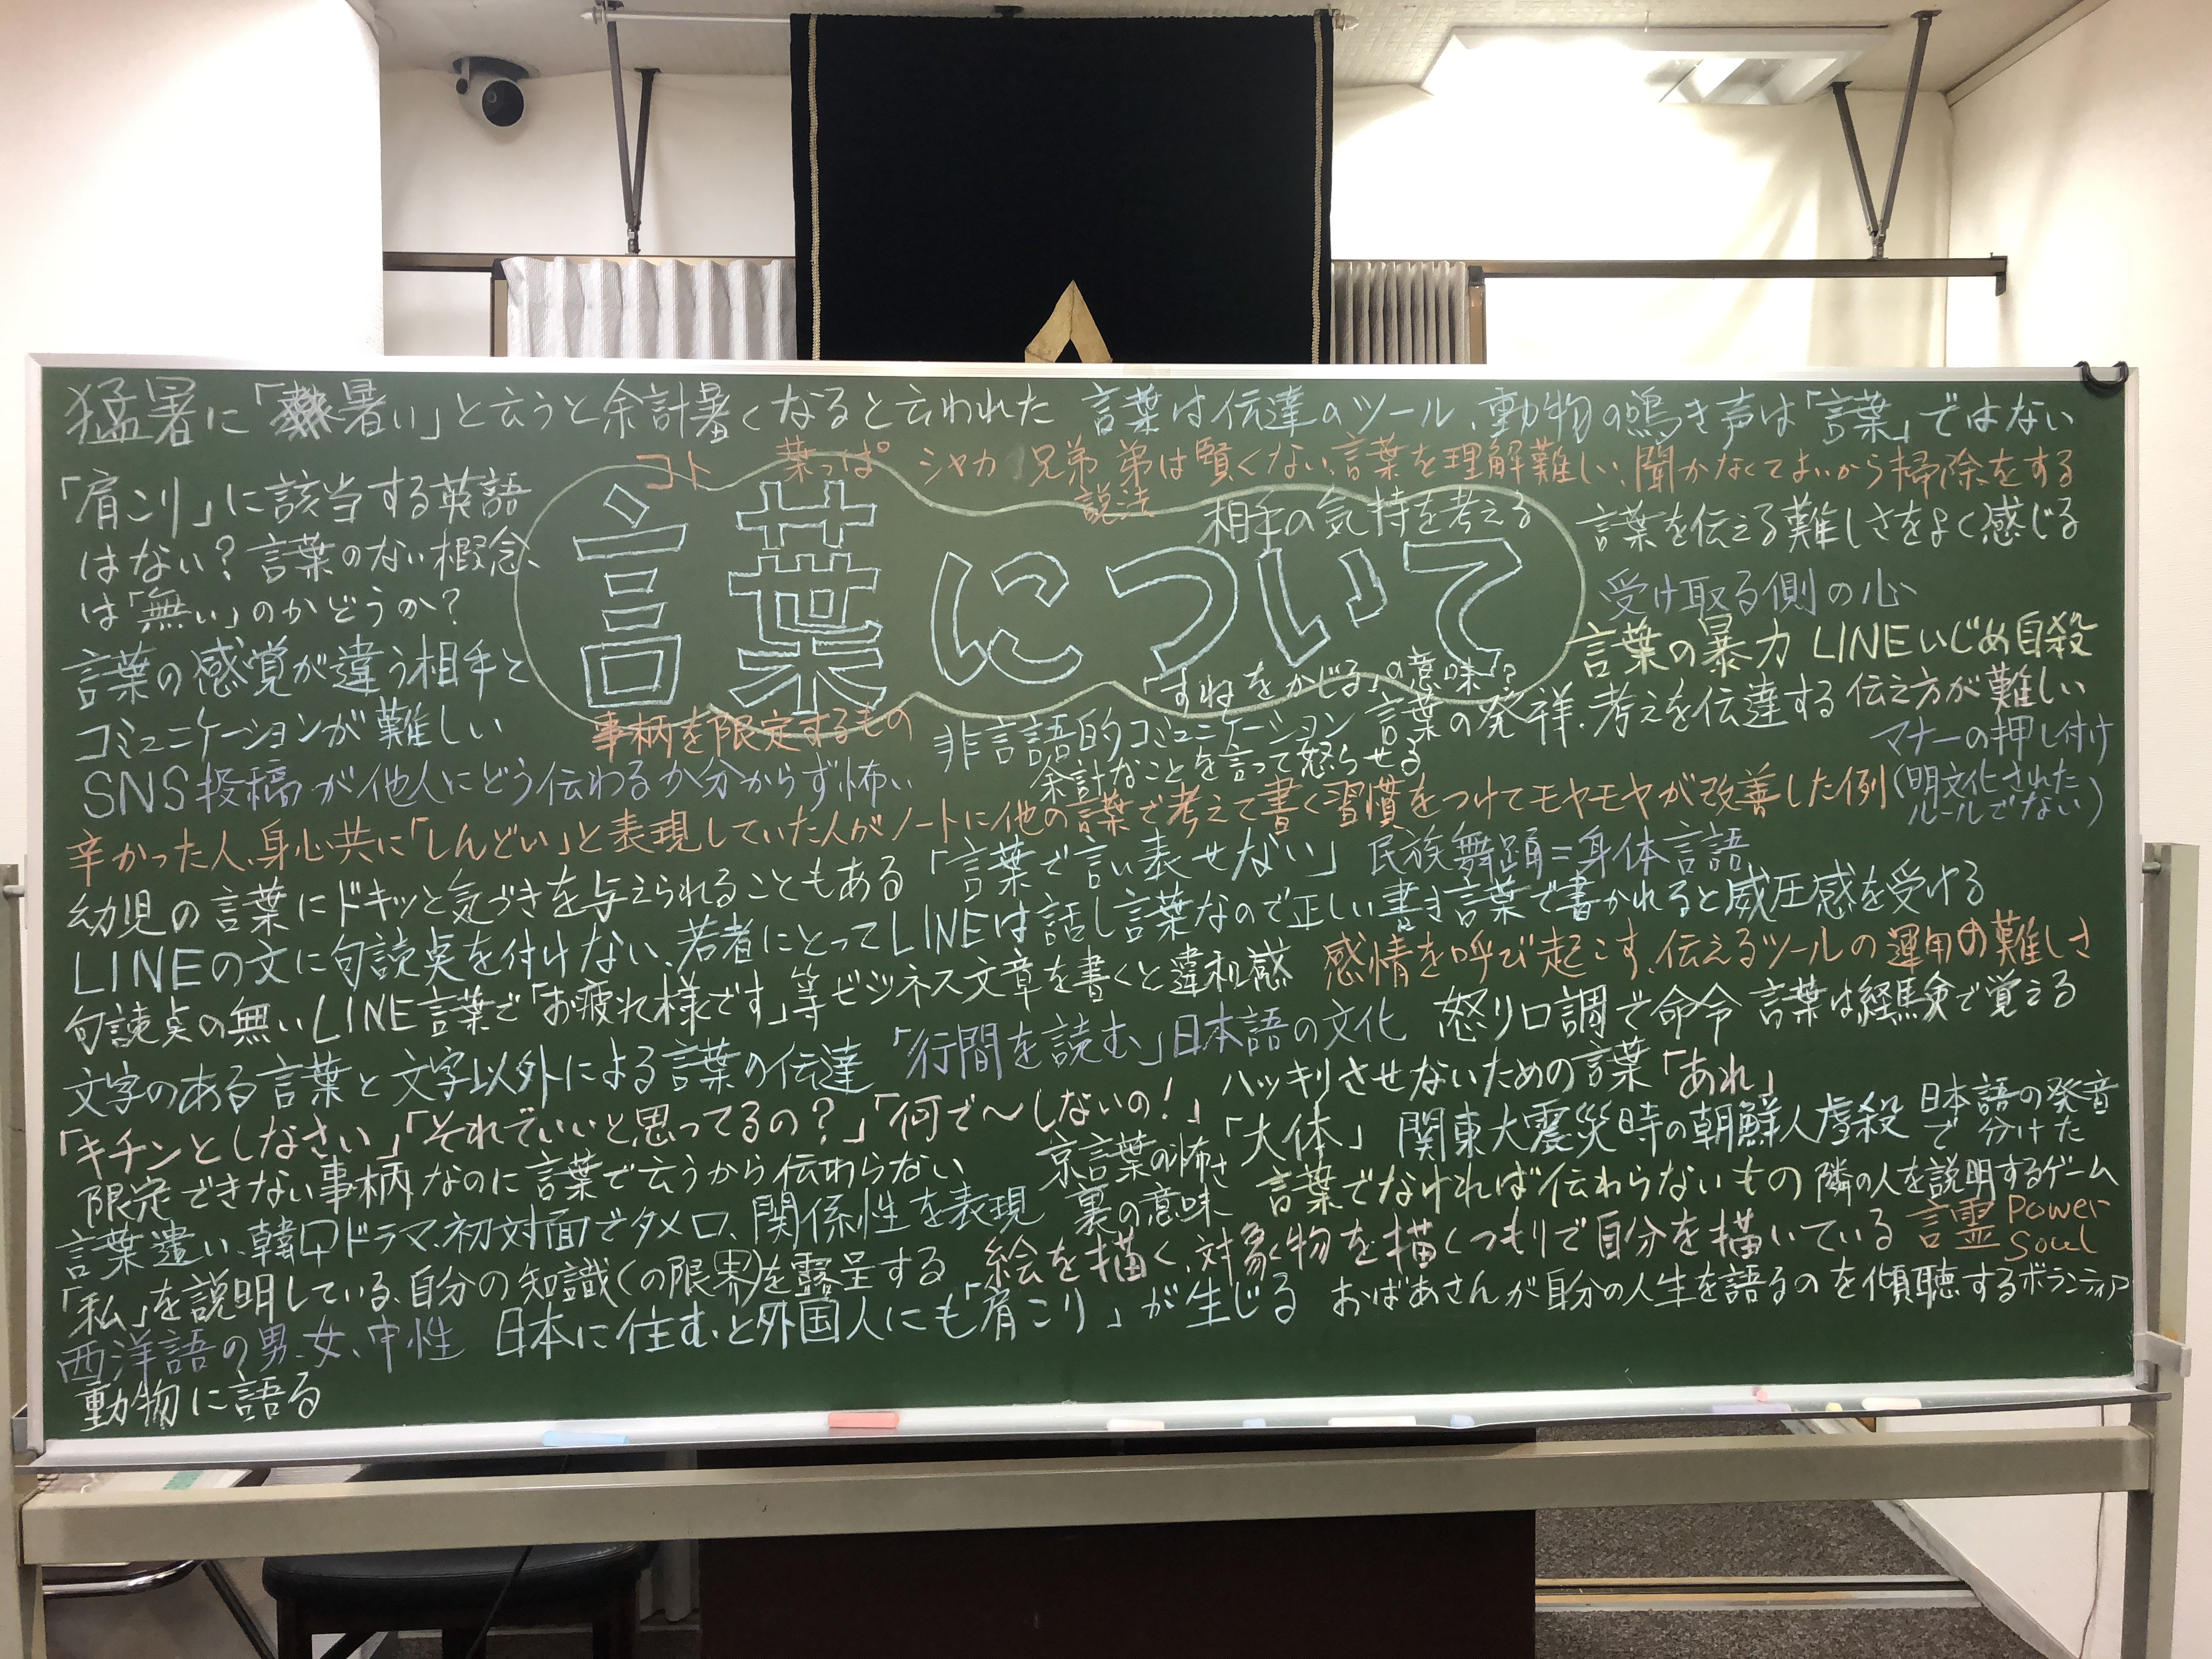 猛暑に「暑い」と云うと余計暑くなると云われた
言葉は伝達のツール、動物の鳴き声は「言葉」ではない
コト 葉っぱ
シャカ 兄弟 弟は賢くない、言葉を理解難しい、聞かなくてよいから掃除をする
説法
「肩こり」に該当する英語
はない？言葉のない概念、
は「無い」のかどうか？
言葉について
相手の気持を考える
言葉を伝える難しさをよく感じる
受け取る側の心
言葉の暴力 LINEいじめ自殺
言葉の感覚が違う相手と
コミュニケーションが難しい
「すねをかじる」の意味？
事柄を限定するもの
非言語的コミュニケーション
言葉の発祥、考えを伝達する
伝え方が難しい
マナーの押し付け
(明文化された
ルールでない)
SNS投稿が他人にどう伝わるか分からず怖い
余計なことを言って怒らせる
辛かった人、身心共に「しんどい」と表現していた人がノートに他の言葉で考えて書く習慣をつけてモヤモヤが改善した例
幼児の言葉にドキッと気づきを与えられることもある
「言葉で言い表せない」
民族舞踊=身体言語
LINEの文に句読点を付けない、若者にとってLINEは話し言葉なので正しい書き言葉で書かれると威圧感を受ける
句読点の無いLINE言葉で「お疲れ様です」等ビジネス文章を書くと違和感
感情を呼び起こす、伝えるツールの運用の難しさ
文字のある言葉と文字以外による言葉の伝達
「行間を読む」日本語の文化
怒り口調で命令
言葉は経験で覚える
「キチンとしなさい」「それでいいと思ってるの？」「何で〜しないの！」
ハッキリさせないための言葉「あれ」
「大体」
関東大震災時の朝鮮人虐殺
日本語の発音
で分けた
限定できない事柄なのに言葉で云うから伝わらない
京言葉の怖さ
裏の意味
言葉でなければ伝わらないもの
隣の人を説明するゲーム
言葉遣い、韓国ドラマ、初対面でタメ口、関係性を表現
絵を描く、対象物を描くつもりで自分を描いている
言霊 Power
Soul
「私」を説明している、自分の知識(の限界)を露呈する
西洋語の男、女、中性
日本に住むと外国人にも「肩こり」が生じる
おばあさんが自分の人生を語るのを傾聴するボランティア
動物に語る